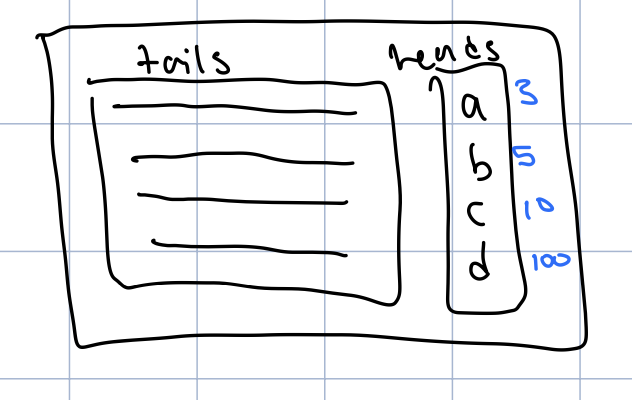 tails heads
a 3
b 5
c 10
d 100